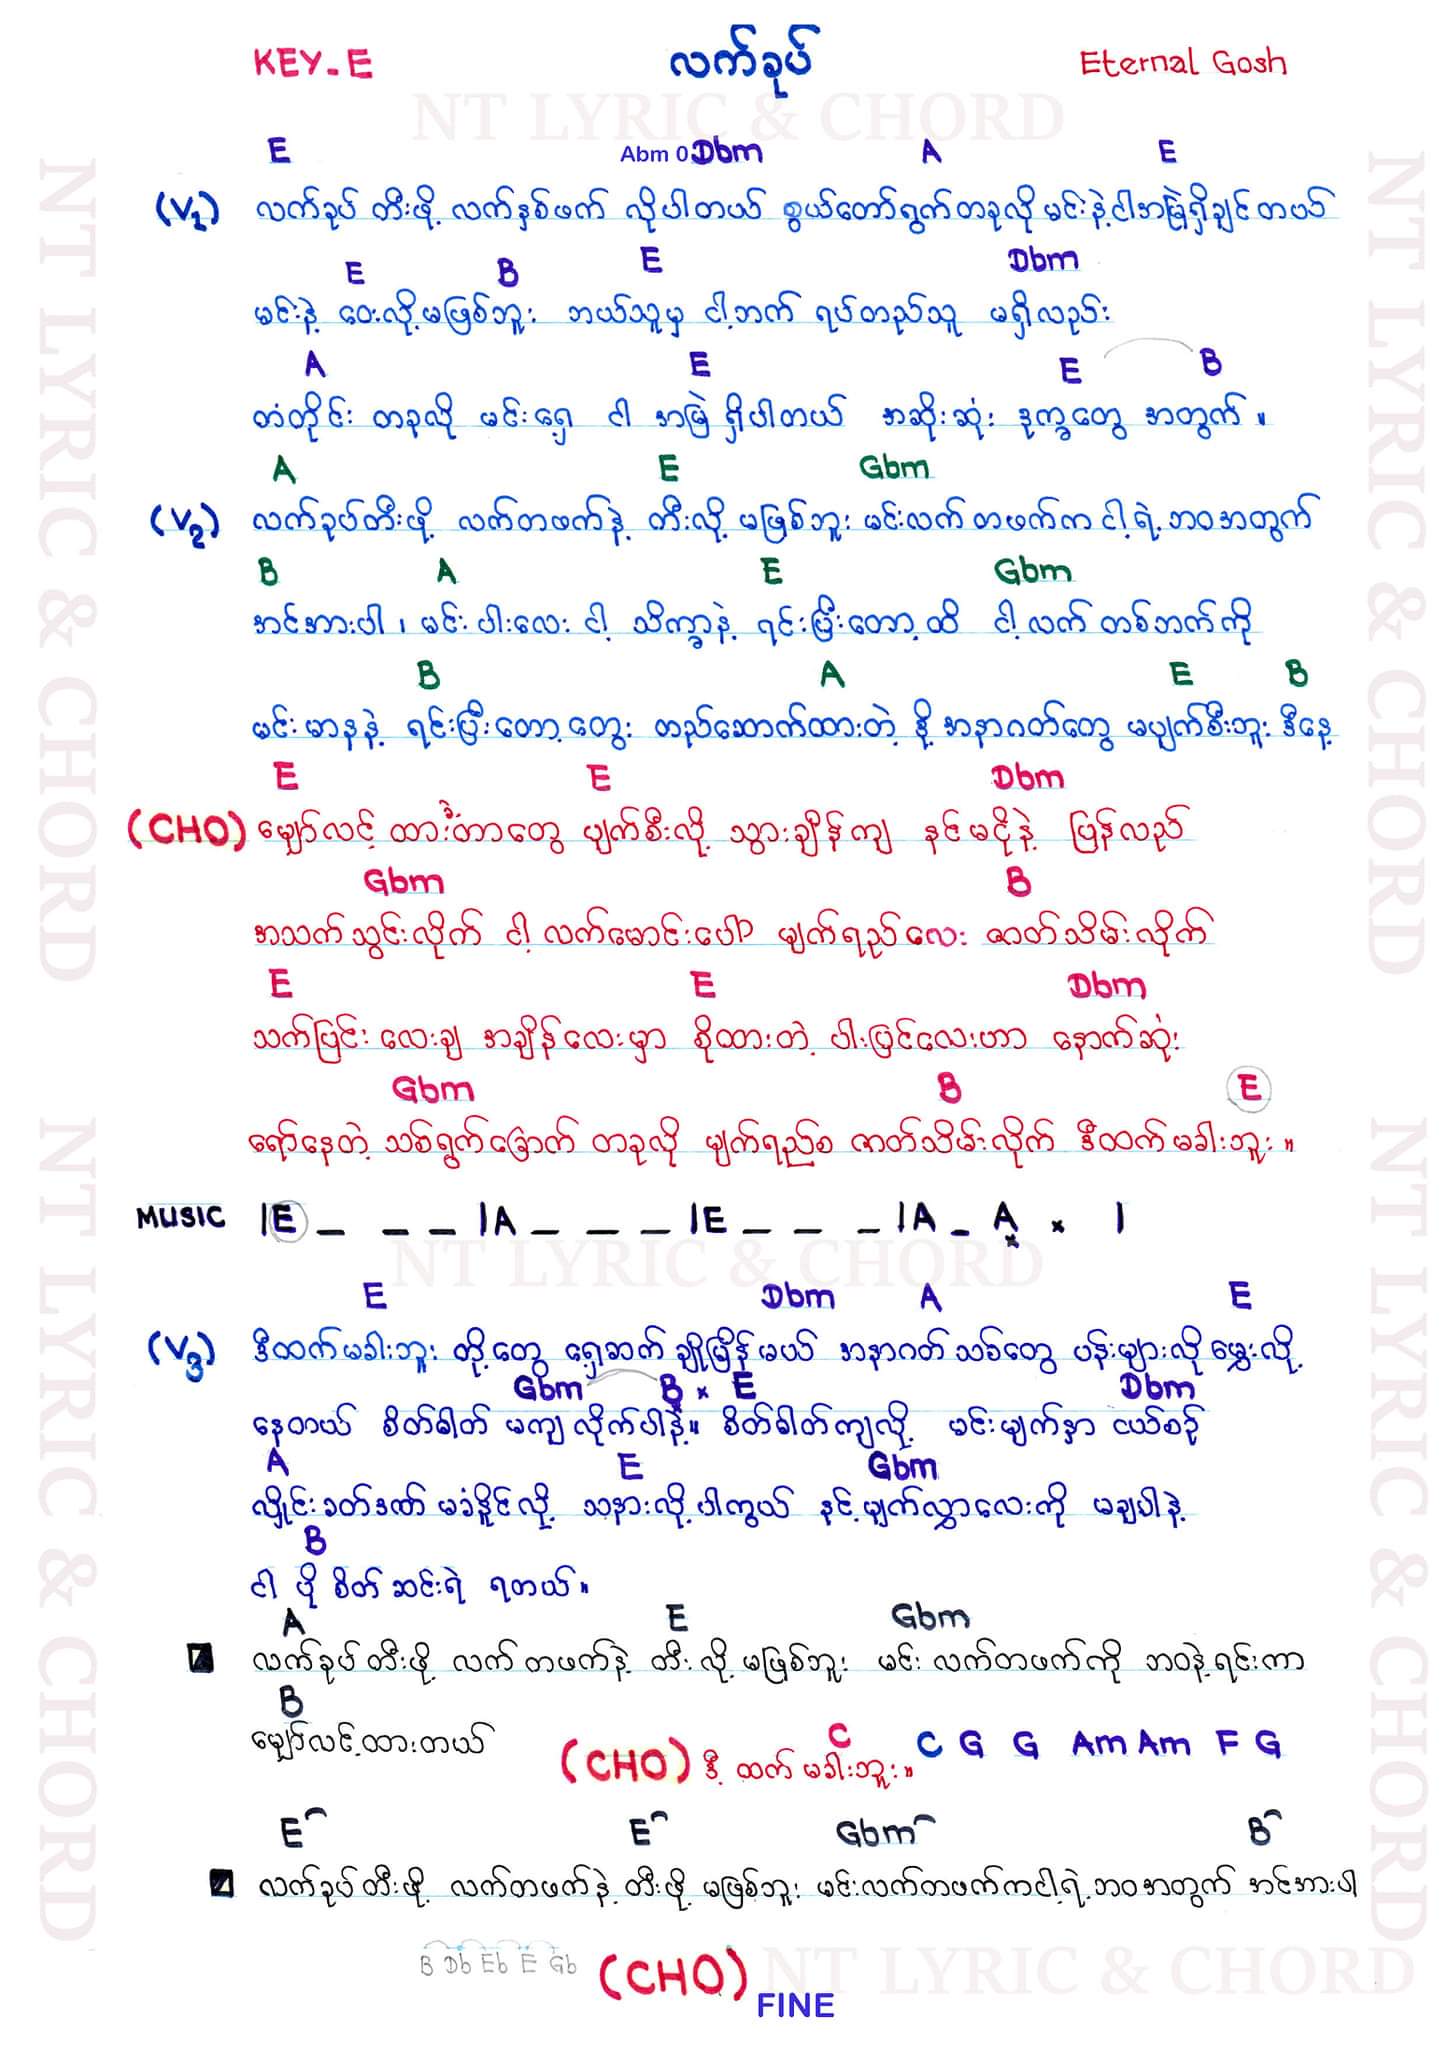 KEY-E လက်ခုပ် Eternal Gosh
NT LYRIC & CHORD
E Abm 0 Dbm A E
(V1) လက်ခုပ် တီးဖို့ လက်နှစ်ဖက် လိုပါတယ် စွယ်တော်ရွက်တခုလို မင်းနဲ့ငါအမြဲရှိချင်တယ်
E B E Dbm
မင်းနဲ့ ဝေးလို့မဖြစ်ဘူး ဘယ်သူမှ ငါ့ဘက် ရပ်တည်သူ မရှိလည်း
A E E B
တံတိုင်း တခုလို မင်းရှေ့ ငါ အမြဲ ရှိပါတယ် အဆိုးဆုံး ဒုက္ခတွေ အတွက်။
A E Gbm
(V2) လက်ခုပ်တီးဖို့ လက်တဖက်နဲ့ တီးလို့ မဖြစ်ဘူး မင်းလက်တဖက်က ငါ့ရဲ့ဘဝအတွက်
B A E Gbm
အင်အားပါ၊ မင်းပါးလေး ငါ့ သိက္ခာနဲ့ ရင်းပြီးတော့ထိ ငါ့လက် တစ်ဘက်ကို
B A E B
မင်းမာနနဲ့ ရင်းပြီးတော့တွေး တည်ဆောက်ထားတဲ့ ဒို့ အနာဂတ်တွေ မပျက်စီးဘူး ဒီနေ့
E E Dbm
(CHO) မျှော်လင့် ထားတာတွေ ပျက်စီးလို့ သွားချိန်ကျ နင်မငိုနဲ့ ပြန်လည်
Gbm B
အသက်သွင်းလိုက် ငါ့ လက်မောင်းပေါ် မျက်ရည်လေး ဇာတ်သိမ်းလိုက်
E E Dbm
သက်ပြင်း လေးချ အချိန်လေးမှာ စိုထားတဲ့ ပါးပြင်လေးဟာ နောက်ဆုံး
Gbm B E
ရော်နေတဲ့ သစ်ရွက်ခြောက် တခုလို မျက်ရည်စ ဇာတ်သိမ်းလိုက် ဒီထက်မခါးဘူး။
MUSIC |E _ _ _ |A _ _ _ |E _ _ _ |A _ A × |
NT LYRIC & CHORD
E Dbm A E
(V3) ဒီထက်မခါးဘူး တို့တွေ ရှေ့ဆက် ချိုမြိန်မယ် အနာဂတ်သစ်တွေ ပန်းများလို မွှေးလို့
Gbm B × E Dbm
နေတယ် စိတ်ဓါတ် မကျလိုက်ပါနဲ့။ စိတ်ဓါတ်ကျလို့ မင်းမျက်နှာ ငယ်စဉ်
A E Gbm
လှိုင်းခတ်ဒဏ် မခံနိုင်လို့ သနားလို့ပါကွယ် နင့်မျက်လွှာလေးကို မချပါနဲ့
B
ငါ ပို စိတ်ဆင်းရဲ ရတယ်။
A E Gbm
လက်ခုပ်တီးဖို့ လက်တဖက်နဲ့ တီးလို့မဖြစ်ဘူး မင်း လက်တဖက်ကို ဘဝနဲ့ရင်းကာ
B
မျှော်လင့်ထားတယ်
C C G G Am Am F G
(CHO) ဒီ့ထက်မခါးဘူး။
E E Gbm B
လက်ခုပ်တီးဖို့ လက်တဖက်နဲ့ တီးဖို့ မဖြစ်ဘူး မင်းလက်တဖက်ကငါ့ရဲ့ဘဝအတွက် အင်အားပါ
B Db Eb E Gb (CHO) NT LYRIC & CHORD
FINE
NT LYRIC & CHORD
NT LYRIC & CHORD
NT LYRIC & CHORD
NT LYRIC & CHORD